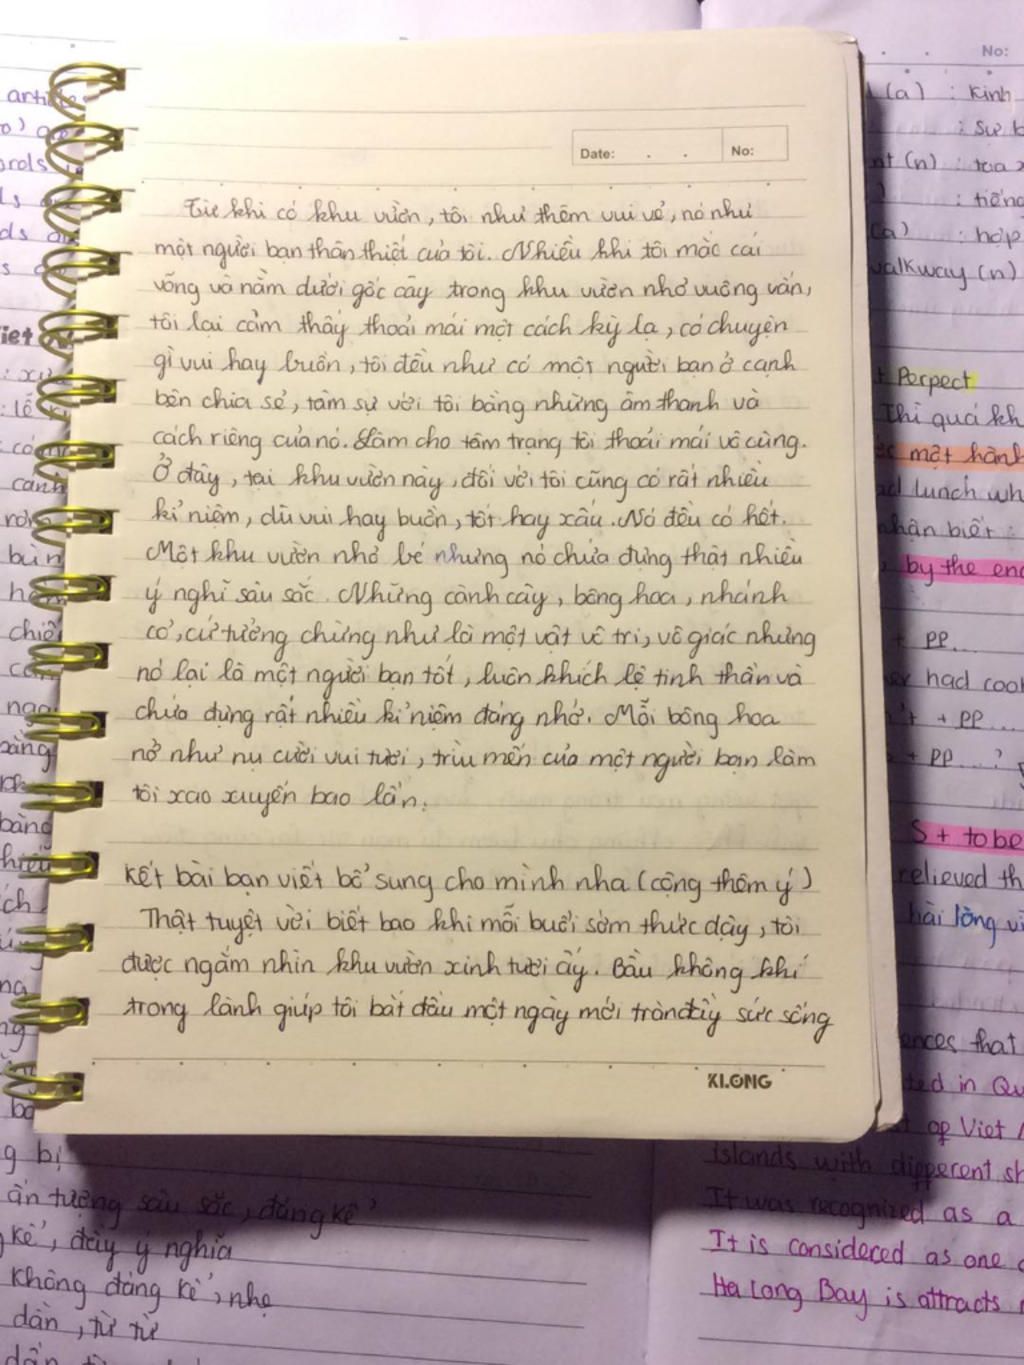 Date: . . No:
Từ khi có khu vườn, tôi như thêm vui vẻ, nó như
một người bạn thân thiết của tôi. Nhiều khi tôi mắc cái
võng và nằm dưới gốc cây trong khu vườn nhỏ vuông vắn,
tôi lại cảm thấy thoải mái một cách kỳ lạ, có chuyện
gì vui hay buồn, tôi đều như có một người bạn ở cạnh
bên chia sẻ, tâm sự với tôi bằng những âm thanh và
cách riêng của nó. Làm cho tâm trạng tôi thoải mái vô cùng.
Ở đây, tại khu vườn này, đối với tôi cũng có rất nhiều
kỉ niệm, dù vui hay buồn, tốt hay xấu. Nó đều có hết.
Một khu vườn nhỏ bé nhưng nó chứa đựng thật nhiều
ý nghĩ sâu sắc. Những cành cây, bông hoa, nhánh
cỏ, cứ tưởng chừng như là một vật vô tri, vô giác nhưng
nó lại là một người bạn tốt, luôn khích lệ tinh thần và
chứa đựng rất nhiều kỉ niệm đáng nhớ. Mỗi bông hoa
nở như nụ cười vui tươi, trìu mến của một người bạn làm
tôi xao xuyến bao lần.
Kết bài bạn viết bổ sung cho mình nha (cộng thêm ý)
Thật tuyệt vời biết bao khi mỗi buổi sớm thức dậy, tôi
được ngắm nhìn khu vườn xinh tươi ấy. Bầu không khí
trong lành giúp tôi bắt đầu một ngày mới tràn đầy sức sống
KLONG
No:
(a) : Kính
: sự
(n) : tòa
: tiếng
: hợp
walkway (n)
Perpect
Thì quá kh
một hành
lunch wh
nhận biết :
by the end
+ PP...
had cook
+ PP...
+ PP...?
S + tobe
relieved th
hài lòng
that
in Qu
op Viet
islands with dipperent sh
It was recognized as a
It is considered as one
Ha Long Bay is attracts
ấn tượng sâu sắc, đáng kể
kể, đầy ý nghĩa
không đáng kể, nhẹ
dần, từ từ